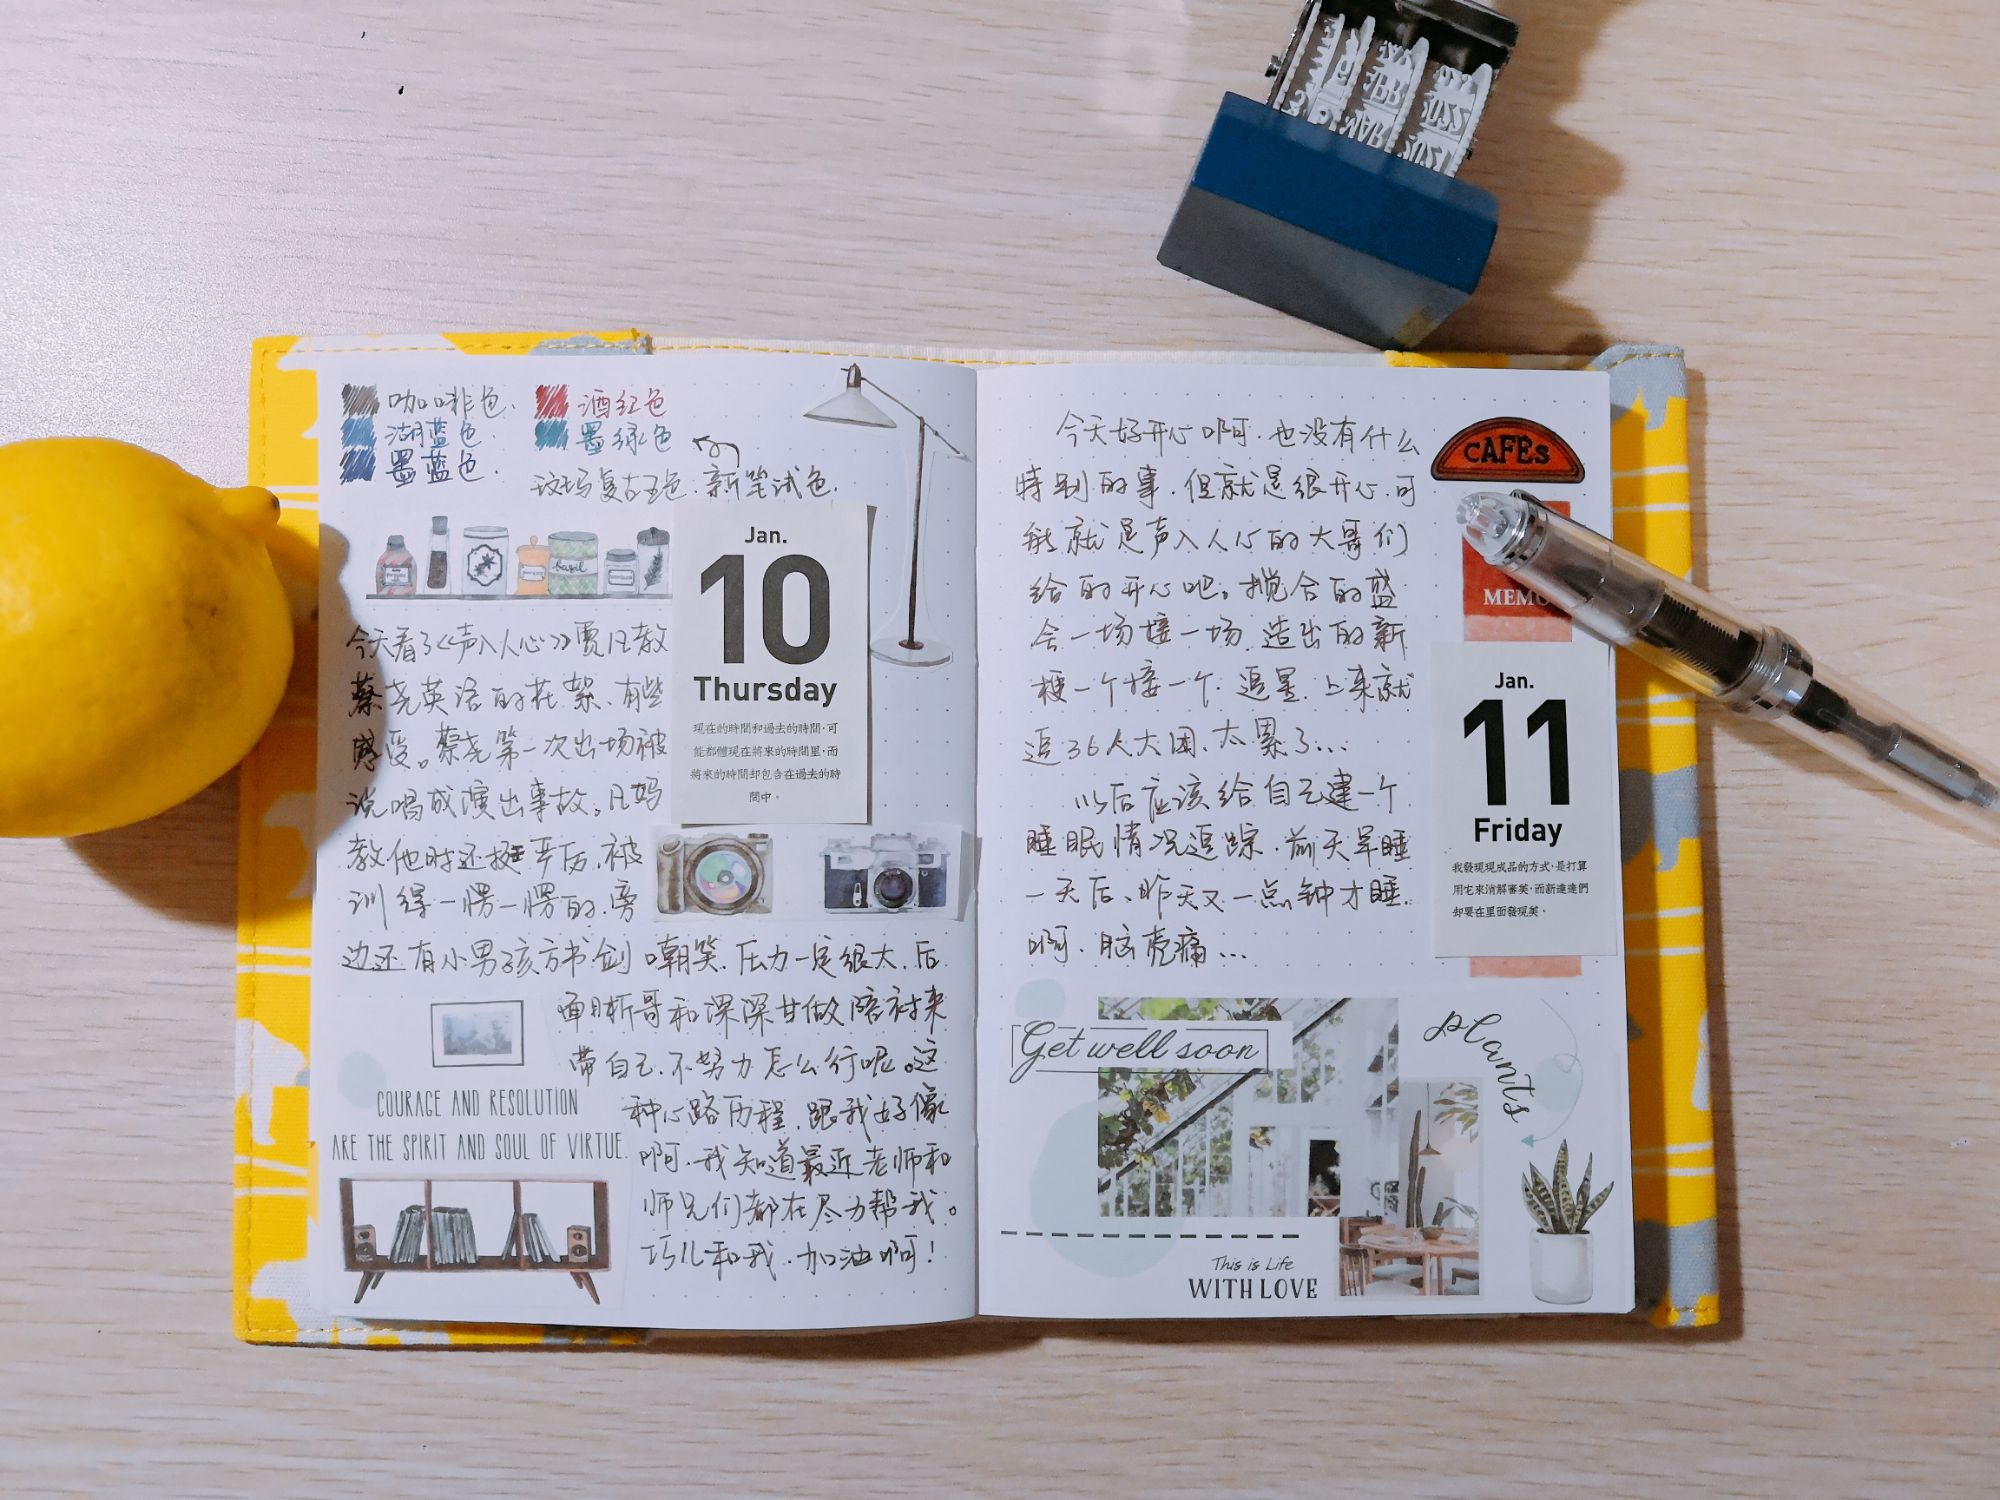 咖啡色.
酒红色
湖蓝色.
墨绿色
墨蓝色.
斑马复古五色.新笔试色.
basil
Jan.
10
Thursday
現在的時間和過去的時間，可
能都體現在將來的時間里，而
將來的時間却包含在過去的時
間中。
今天看了《声入人心》贾凡教
蔡尧英语的花絮.有些
感受。蔡尧第一次出场被
说唱成演出事故。凡妈
教他时还挺严厉.被
训得一愣一愣的.旁
边还有小男孩方书剑嘲笑.压力一定很大.后
面晰哥和深深甘做陪衬来
带自己.不努力怎么行呢。这
种心路历程.跟我好像
啊.我知道最近老师和
师兄们都在尽力帮我。
巧儿和我.加油啊！
COURAGE AND RESOLUTION
ARE THE SPIRIT AND SOUL OF VIRTUE.
今天好开心啊.也没有什么
特别的事.但就是很开心.可
能就是声入人心的大哥们
给的开心吧。搅合的盛
会一场接一场.造出的新
梗一个接一个.追星.上来就
追36人大团.太累了...
以后应该给自己建一个
睡眠情况追踪.前天早睡
一天后、昨天又一点钟才睡.
啊.脑壳痛...
CAFES
MEMO
Jan.
11
Friday
我發現現成品的方式，是打算
用它來消解審美，而新達達們
却要在里面發現美。
Get well soon
plants
This is Life
WITH LOVE
MAR
2021
2022